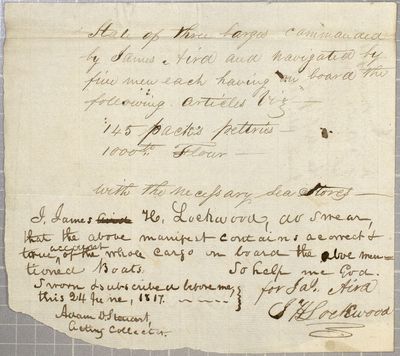 State of three barges commanded
by James Aird and navigated by
five men each having on board the
following articles Viz —
145 packs peteries —
1000 lb Flour —
with the necessary Sea Stores —
I, James Aird H. Lockwood, do swear,
that the above manifest contains a correct &
true account of the whole cargo on board the above men-
tioned Boats. So help me God.
Sworn & subscribed before me, } for Jas. Aird
this 24 June, 1817. J H Lockwood
Adam D Steuart,
Acting Collector.